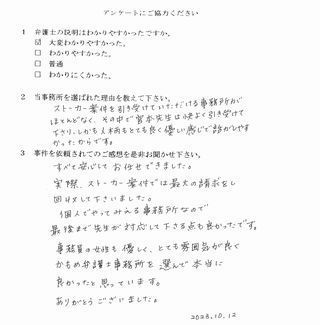 アンケートにご協力ください
1 弁護士の説明はわかりやすかったですか。
☑ 大変わかりやすかった。
□ わかりやすかった。
□ 普通
□ わかりにくかった。
2 当事務所を選ばれた理由を教えて下さい。
ストーカー案件を引き受けていただける事務所が
ほとんどなく、その中で宮本先生は快よく引き受けて
下さり、しかも人柄もとても良く優しい感じで話がしやす
かったからです。
3 事件を依頼されてのご感想を是非お聞かせ下さい。
すべて安心してお任せできました。
実際、ストーカー案件では最大の請求をし
回収して下さいました。
個人でやってみえる事務所なので
最後まで先生が対応して下さる点も良かったです。
事務員の女性も優しく、とても雰囲気が良く
かもめ弁護士事務所を選んで本当に
良かったと思っています。
ありがとうございました。
2023.10.12